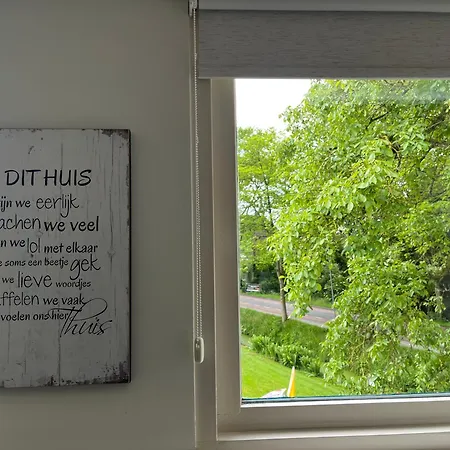 DIT HUIS
ijn we eerlijk
achen we veel
n we lol met elkaar
e soms een beetje gek
we lieve woordjes
affelen we vaak
voelen ons hier Thuis